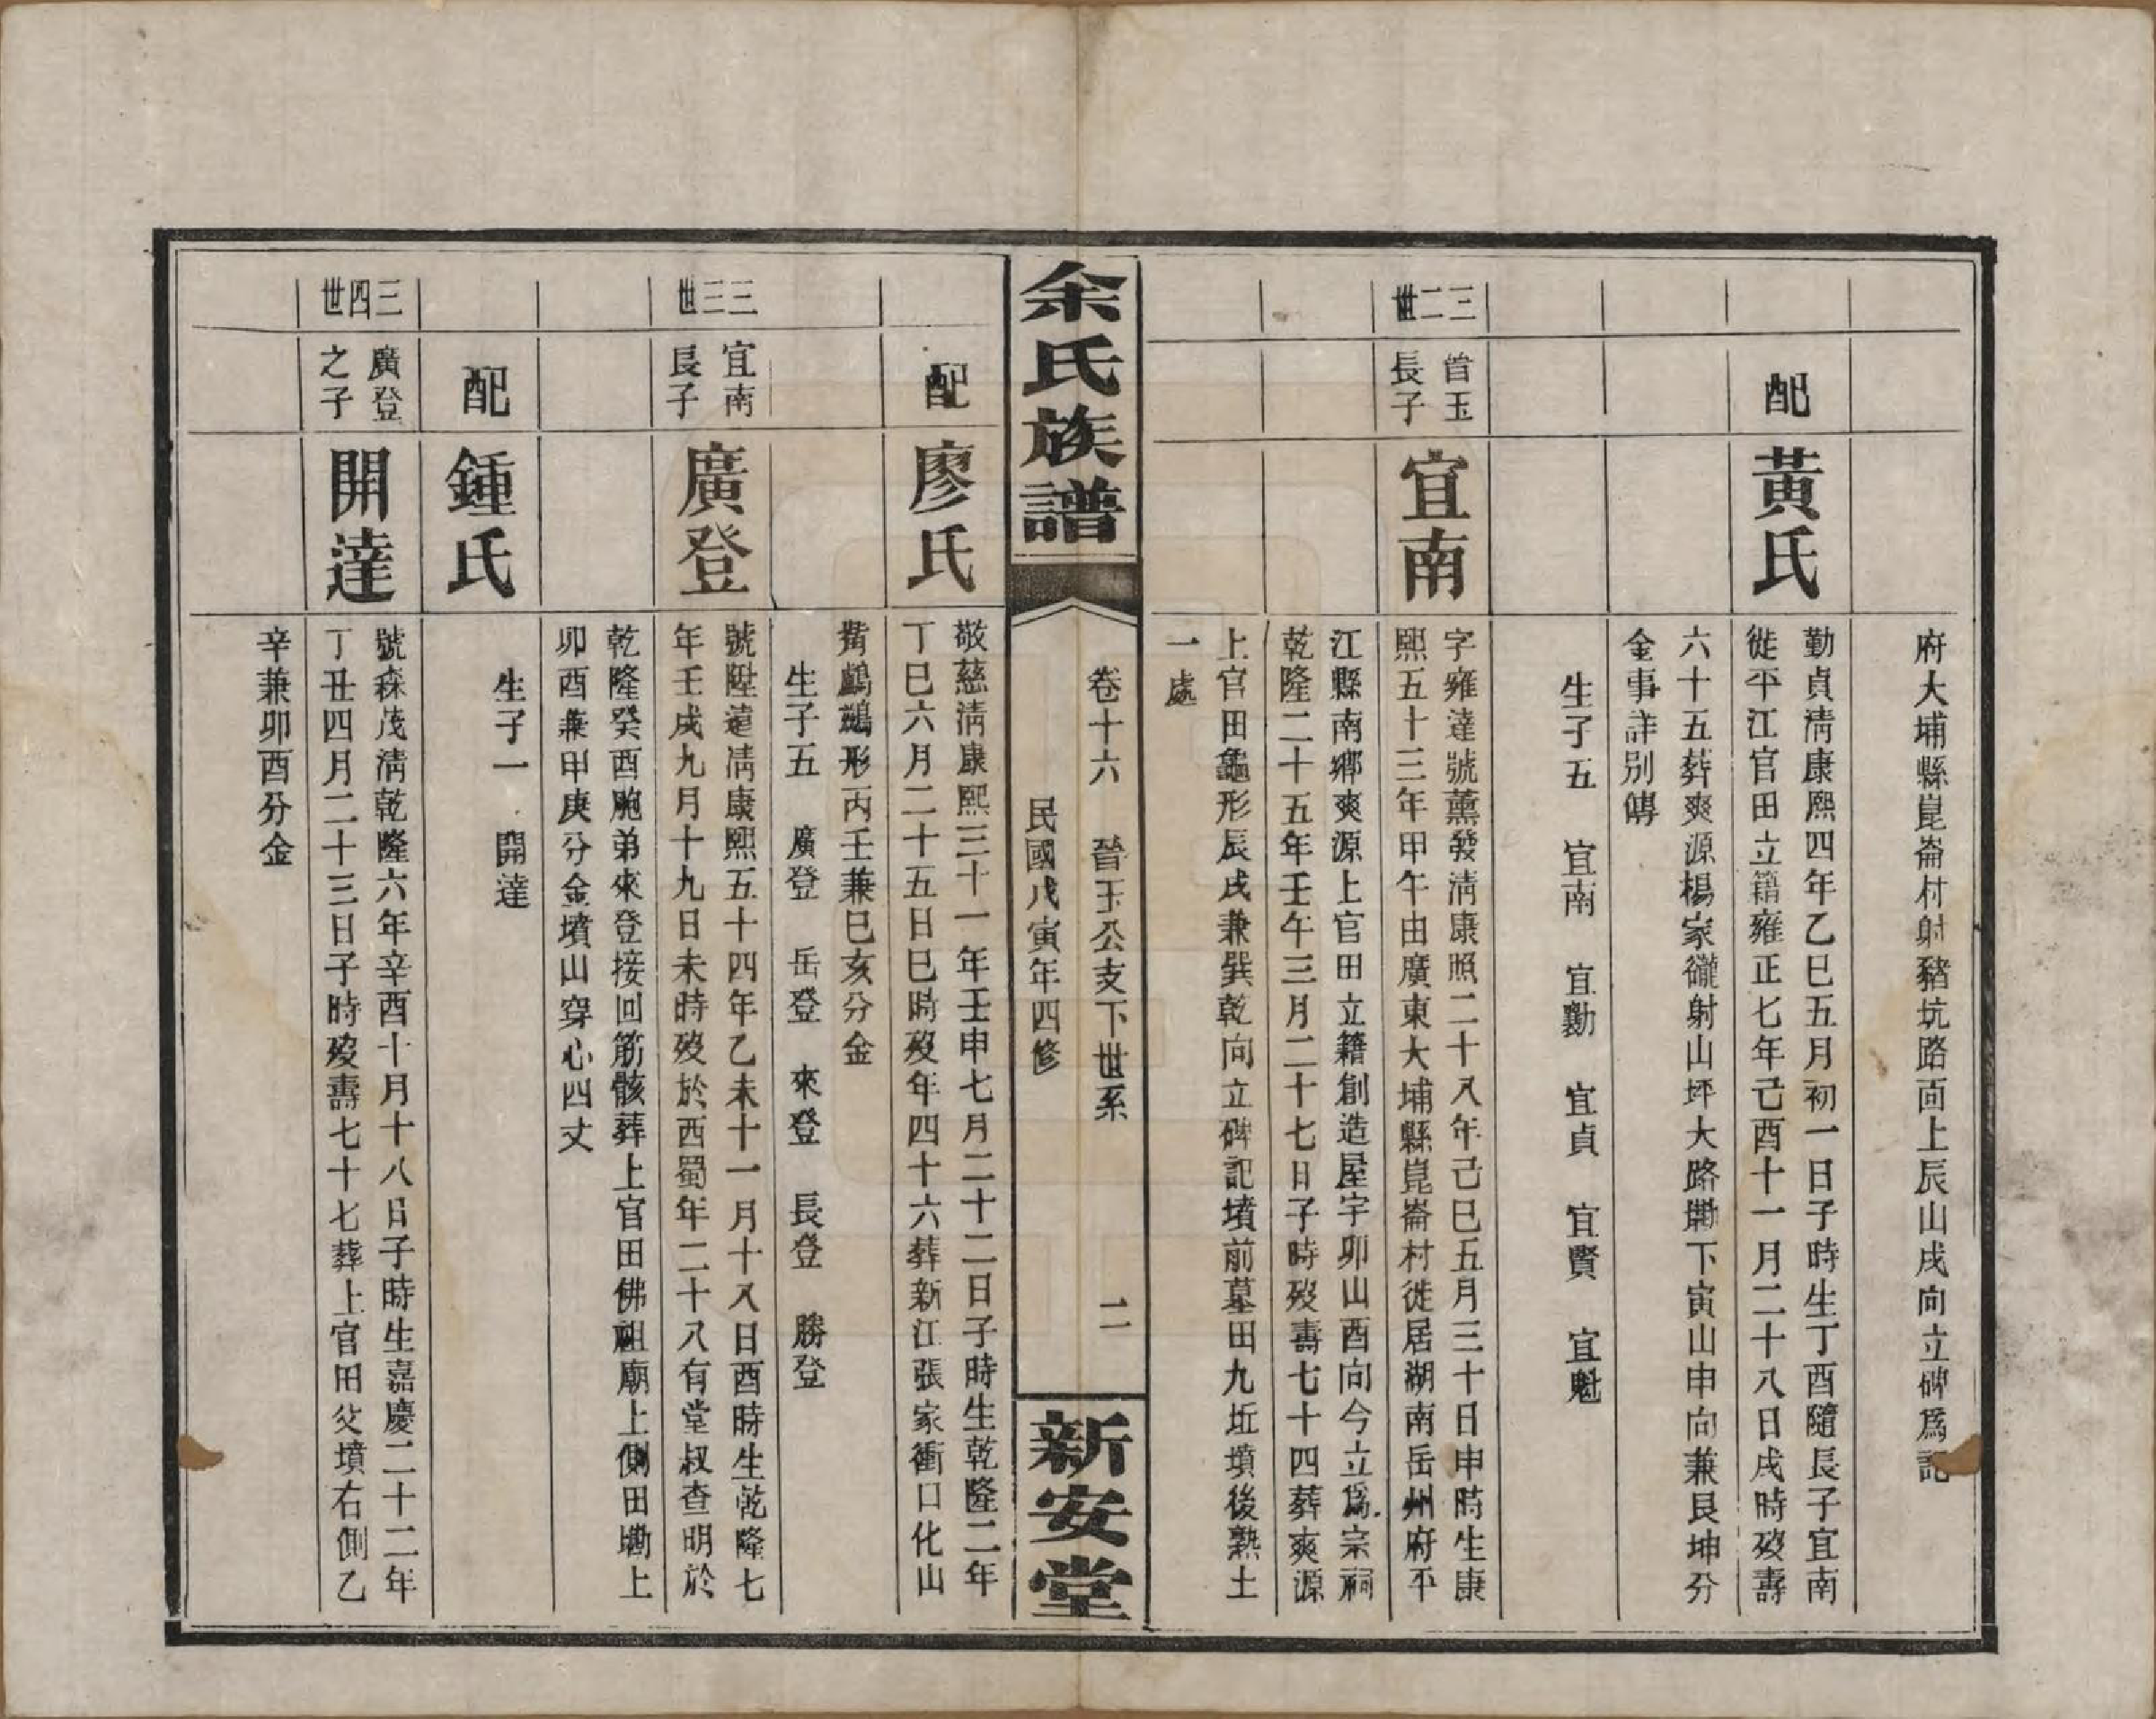 府大埔縣崑崙村射豬坑路面上辰山戌向立碑爲記
配
黃氏
勤貞淸康熙四年乙巳五月初一日子時生丁酉隨長子宜南
徙平江官田立籍雍正七年己酉十一月二十八日戌時歿壽
六十五葬爽源楊家嶐射山坪大路墈下寅山申向兼艮坤分
金事詳別傳
生子五　宜南　宜勷　宜貞　宜賢　宜魁
三二世
首玉
長子
宜南
字雍達號薰發淸康熙二十八年己巳五月三十日申時生康
熙五十三年甲午由廣東大埔縣崑崙村徙居湖南岳州府平
江縣南鄉爽源上官田立籍創造屋宇卯山酉向今立爲宗祠
乾隆二十五年壬午三月二十七日子時歿壽七十四葬爽源
上官田龜形辰戌兼巽乾向立碑記墳前墓田九坵墳後熟土
一處
余氏族譜
卷十六　晉玉公支下世系　二
民國戊寅年四修
新安堂
配
廖氏
敬慈淸康熙三十一年壬申七月二十二日子時生乾隆二年
丁巳六月二十五日巳時歿年四十六葬新江張家衝口化山
鸕鶿形丙壬兼巳亥分金
生子五　廣登　岳登　來登　長登　勝登
三三世
宜南
長子
廣登
號陞遠淸康熙五十四年乙未十一月十八日酉時生乾隆七
年壬戌九月十九日未時歿於西蜀年二十八有堂叔查明於
乾隆癸酉胞弟來登接回筋骸葬上官田佛祖廟上側田墈上
卯酉兼甲庚分金墳山穿心四丈
配
鍾氏
生子一　開達
三四世
廣登
之子
開達
號森茂淸乾隆六年辛酉十月十八日子時生嘉慶二十二年
丁丑四月二十三日子時歿壽七十七葬上官田父墳右側乙
辛兼卯酉分金